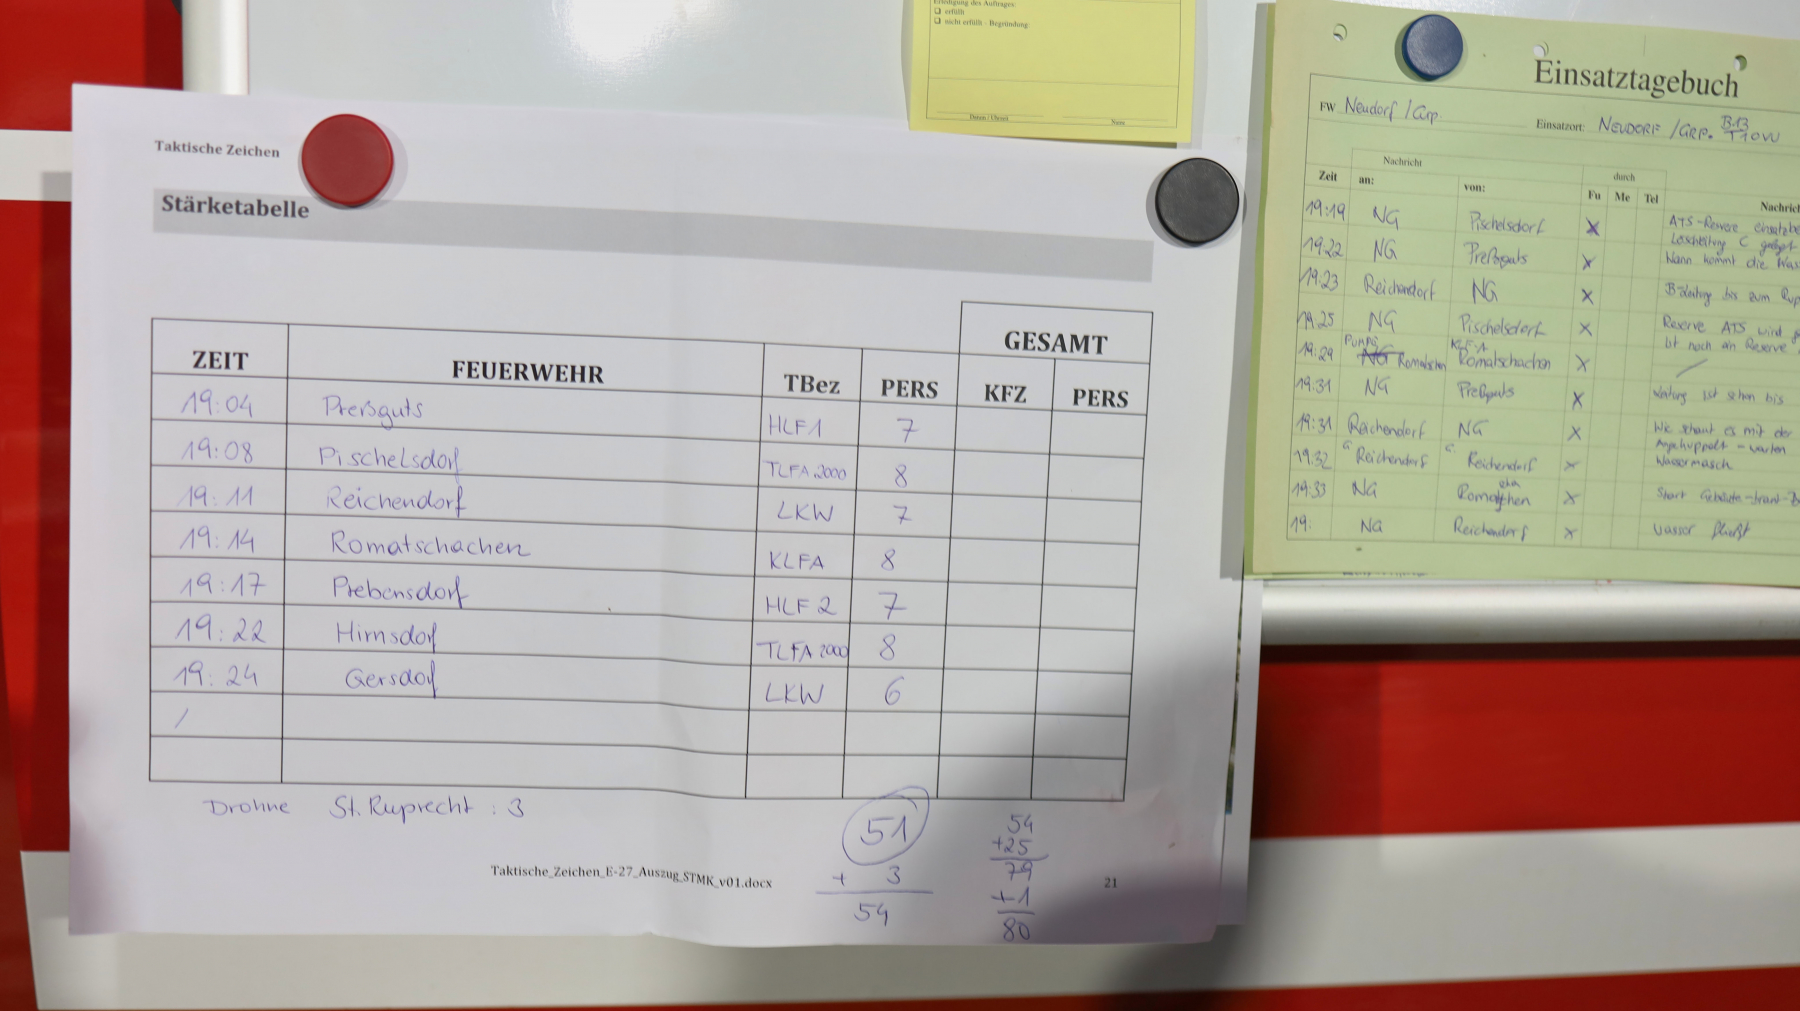 Erledigung des Auftrages:
❑ erfüllt
❑ nicht erfüllt - Begründung:
Datum / Uhrzeit Name
Taktische Zeichen
Stärketabelle
GESAMT
ZEIT FEUERWEHR TBez PERS KFZ PERS
19:04 Preßguts HLF1 7
19:08 Pischelsdorf TLFA 2000 8
19:11 Reichendorf LKW 7
19:14 Romatschachen KLFA 8
19:17 Prebensdorf HLF 2 7
19:22 Hirnsdorf TLFA 2000 8
19:24 Gersdorf LKW 6
/
Drohne St. Ruprecht : 3
51
+ 3
54
54
+25
79
+1
80
Taktische_Zeichen_E-27_Auszug_STMK_v01.docx
21
Einsatztagebuch
FW Neudorf /Grp. Einsatzort: NEUDORF /GRP. B13
Nachricht durch
Zeit an: von: Fu Me Tel
19:19 NG Pischelsdorf X ATS-Reserve
19:22 NG Preßguts X Wann kommt die
19:23 Reichendorf NG X bis zum
19:25 NG Pischelsdorf X Reserve ATS wird
ist noch ein Reserve
19:29 Romatschachen X
19:31 NG Preßguts X ist schon bis
19:31 Reichendorf NG X Wie schaut es mit der
19:32 Reichendorf Reichendorf X
19:33 NG X Start
19: NG Reichendorf X Wasser fließt